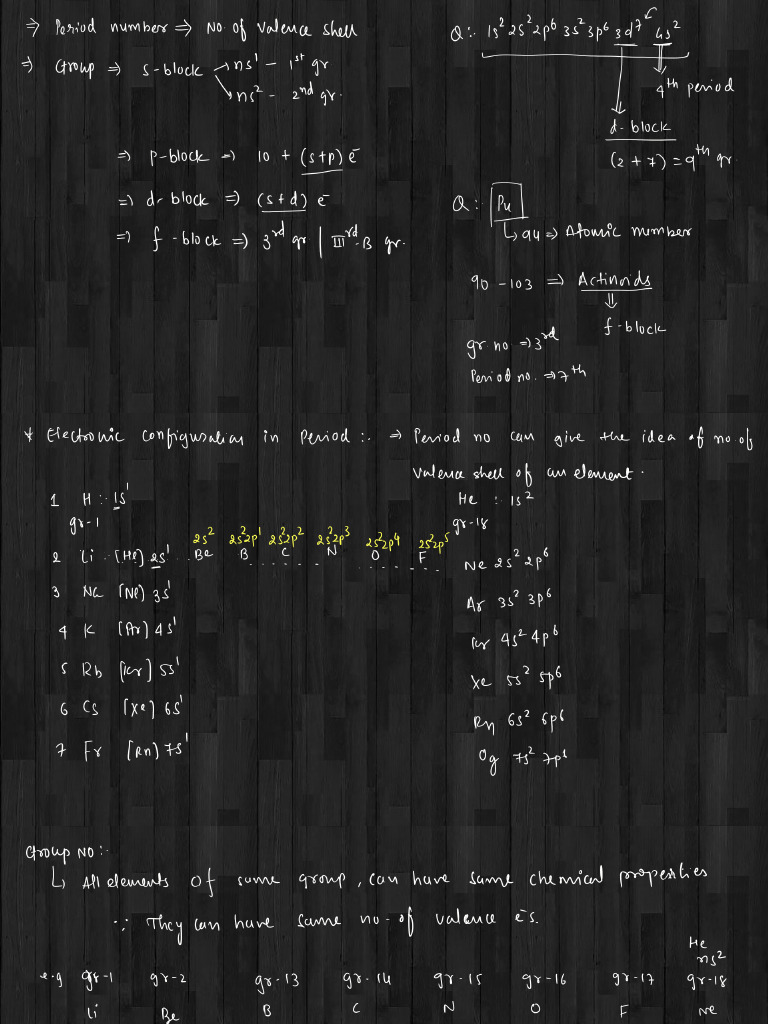 ⇒ Period number ⇒ No. of Valence shell
⇒ Group ⇒ s-block → ns¹ - 1st gr
→ ns² - 2nd gr.
⇒ p-block ⇒ 10 + (s+p) e⁻
⇒ d-block ⇒ (s+d) e⁻
⇒ f-block ⇒ 3rd gr | IIIrd-B gr.
Q:. 1s² 2s² 2p⁶ 3s² 3p⁶ 3d⁷ 4s²
4th period
d-block
(2+7) = 9th gr.
Q: Pu
↳ 94 ⇒ Atomic number
90 - 103 ⇒ Actinoids
⇓
f-block
gr no ⇒ 3rd
Period no. ⇒ 7th
* Electronic configuration in Period :. ⇒ Period no can give the idea of no. of
valence shell of an element.
1 H :. 1s¹ He : 1s²
gr-1 gr-18
2s² 2s²2p¹ 2s²2p² 2s²2p³ 2s²2p⁴ 2s²2p⁵
2 Li [He] 2s¹ Be B C N O F Ne 2s² 2p⁶
3 Na [Ne] 3s¹ Ar 3s² 3p⁶
4 K [Ar] 4s¹ Kr 4s² 4p⁶
5 Rb [Kr] 5s¹ Xe 5s² 5p⁶
6 Cs [Xe] 6s¹ Rn 6s² 6p⁶
7 Fr [Rn] 7s¹ Og 7s² 7p⁶
Group No :.
↳ All elements of same group, can have same chemical properties
∵ They can have same no. of valence e⁻s.
He
ns²
e.g gr-1 gr-2 gr-13 gr-14 gr-15 gr-16 gr-17 gr-18
Li Be B C N O F Ne